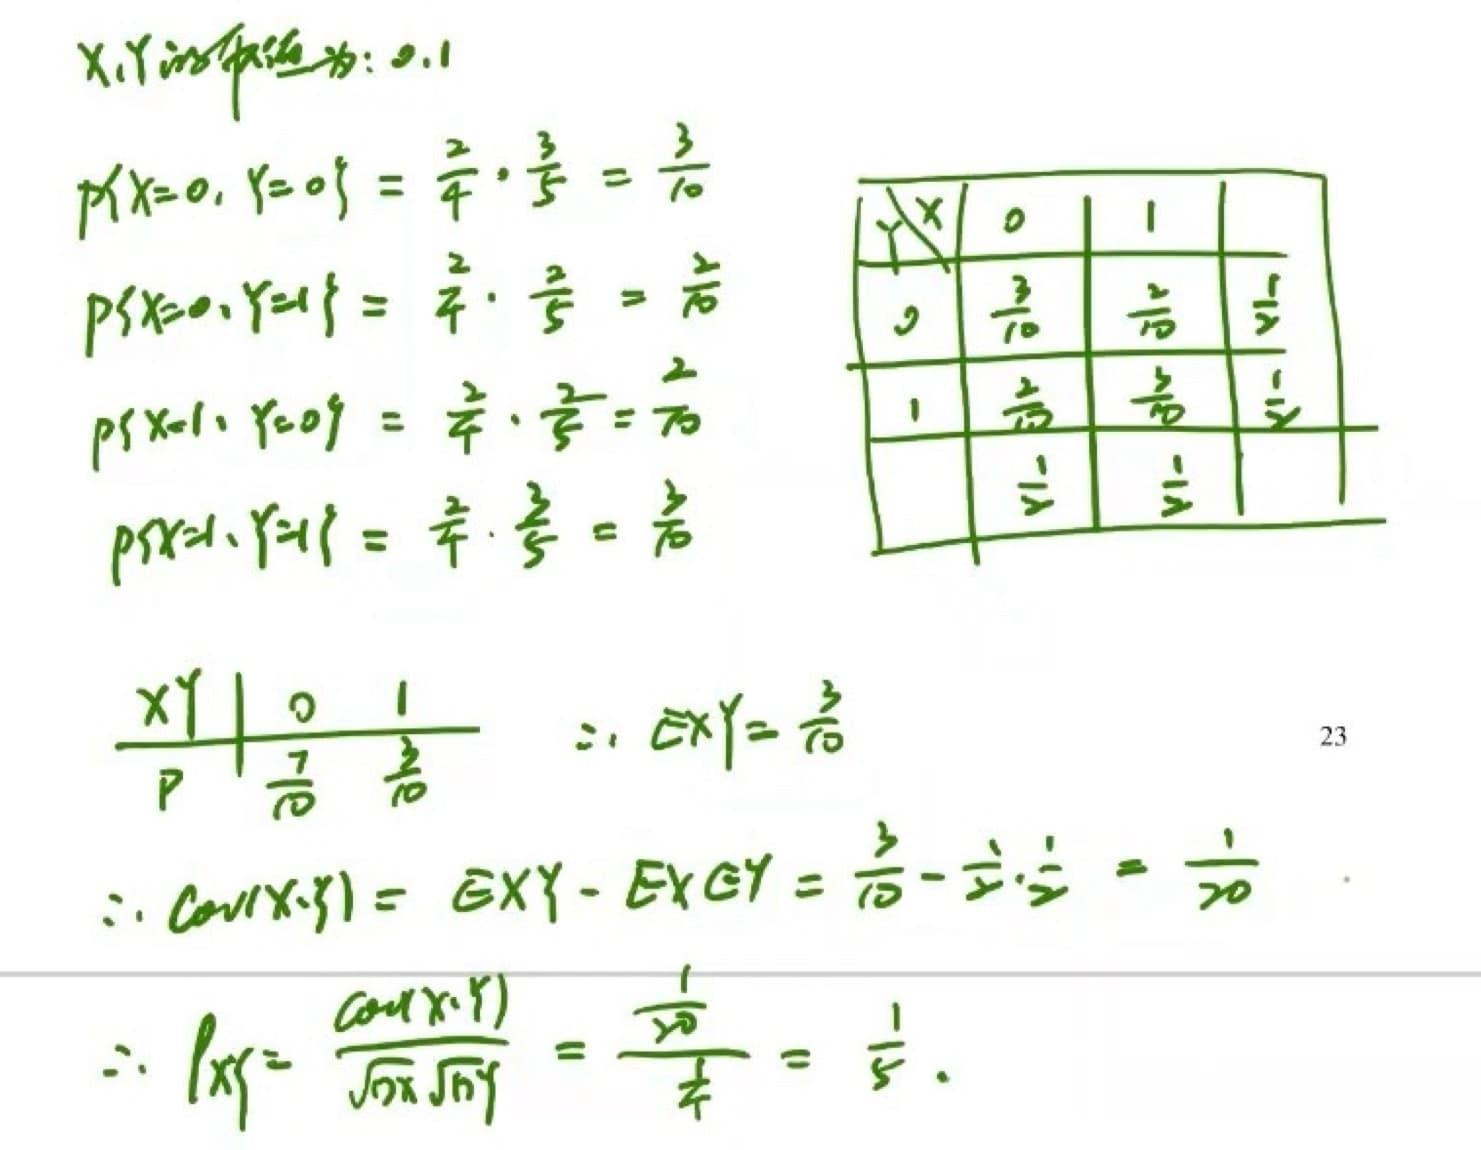 X,Y的取值为:0.1
P{X=0,Y=0} = 2/4 · 3/5 = 3/10
P{X=0,Y=1} = 2/4 · 2/5 = 2/10
P{X=1,Y=0} = 2/4 · 2/5 = 2/10
P{X=1,Y=1} = 2/4 · 3/5 = 3/10
Y\X 0 1
0 3/10 2/10 1/2
1 2/10 3/10 1/2
1/2 1/2
XY 0 1
P 7/10 3/10
∴ EXY = 3/10
23
∴ Cov(X,Y) = EXY - EXEY = 3/10 - 1/2 · 1/2 = 1/20
∴ ρXY = Cov(X,Y)/√DX√DY = 1/20 / 1/4 = 1/5.